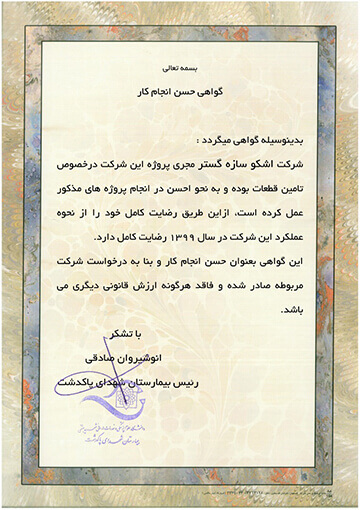 بسمه تعالی
گواهی حسن انجام کار
بدینوسیله گواهی میگردد :
شرکت اشکو سازه گستر مجری پروژه این شرکت درخصوص
تامین قطعات بوده و به نحو احسن در انجام پروژه های مذکور
عمل کرده است، ازاین طریق رضایت کامل خود را از نحوه
عملکرد این شرکت در سال ۱۳۹۹ رضایت کامل دارد.
این گواهی بعنوان حسن انجام کار و بنا به درخواست شرکت
مربوطه صادر شده و فاقد هرگونه ارزش قانونی دیگری می
باشد.
با تشکر
انوشیروان صادقی
رئیس بیمارستان شهدای پاکدشت
بیمارستان شهدای پاکدشت